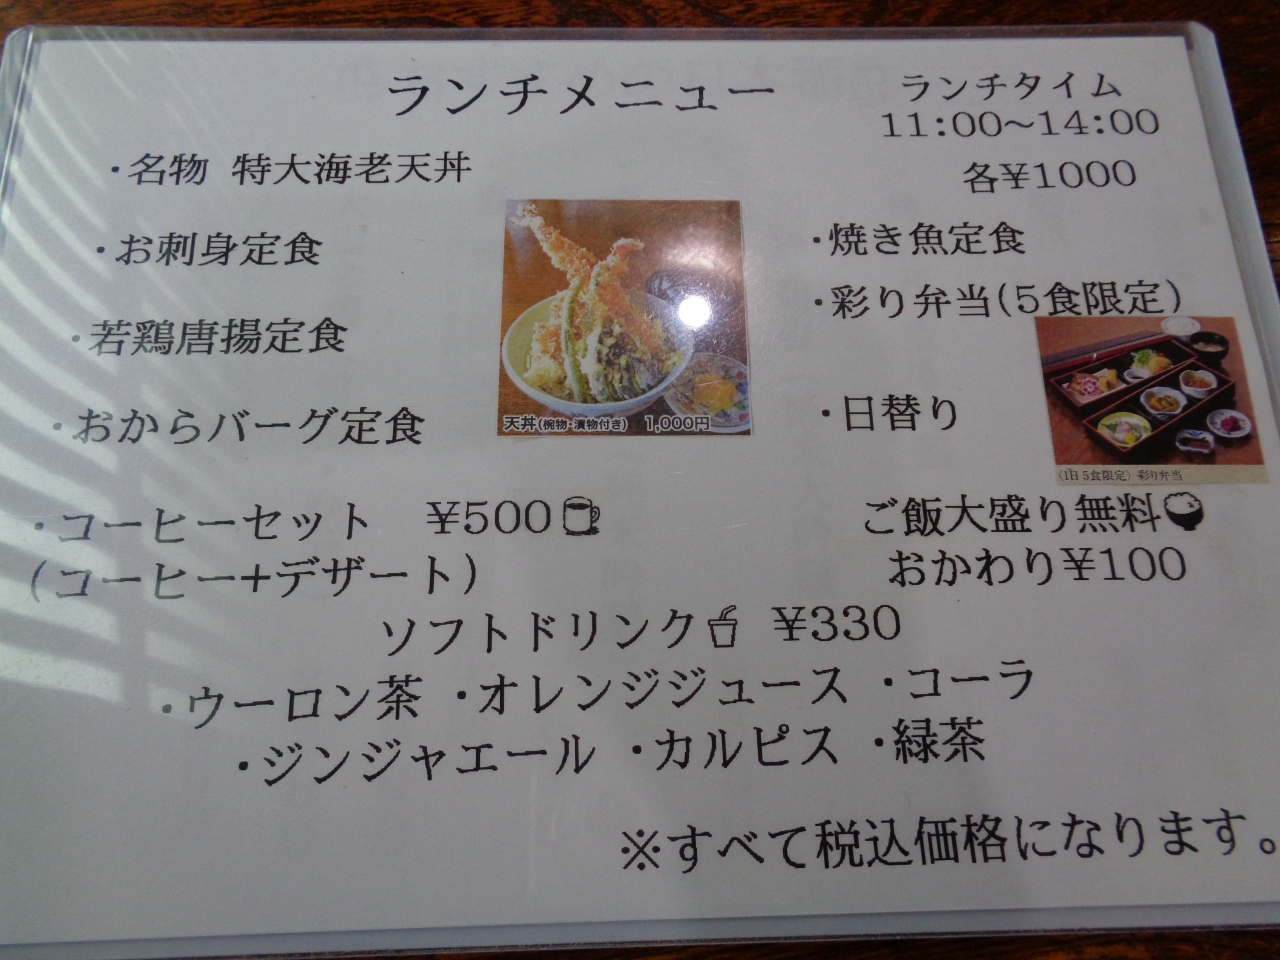 ランチメニュー
ランチタイム
11:00～14:00
・名物 特大海老天丼
各¥1000
・お刺身定食
・焼き魚定食
・彩り弁当(5食限定)
・若鶏唐揚定食
・おからバーグ定食
・日替り
天丼(椀物・漬物付き) 1,000円
(1日5食限定) 彩り弁当
・コーヒーセット ¥500
(コーヒー+デザート)
ご飯大盛り無料
おかわり¥100
ソフトドリンク ¥330
・ウーロン茶 ・オレンジジュース ・コーラ
・ジンジャエール ・カルピス ・緑茶
※すべて税込価格になります。